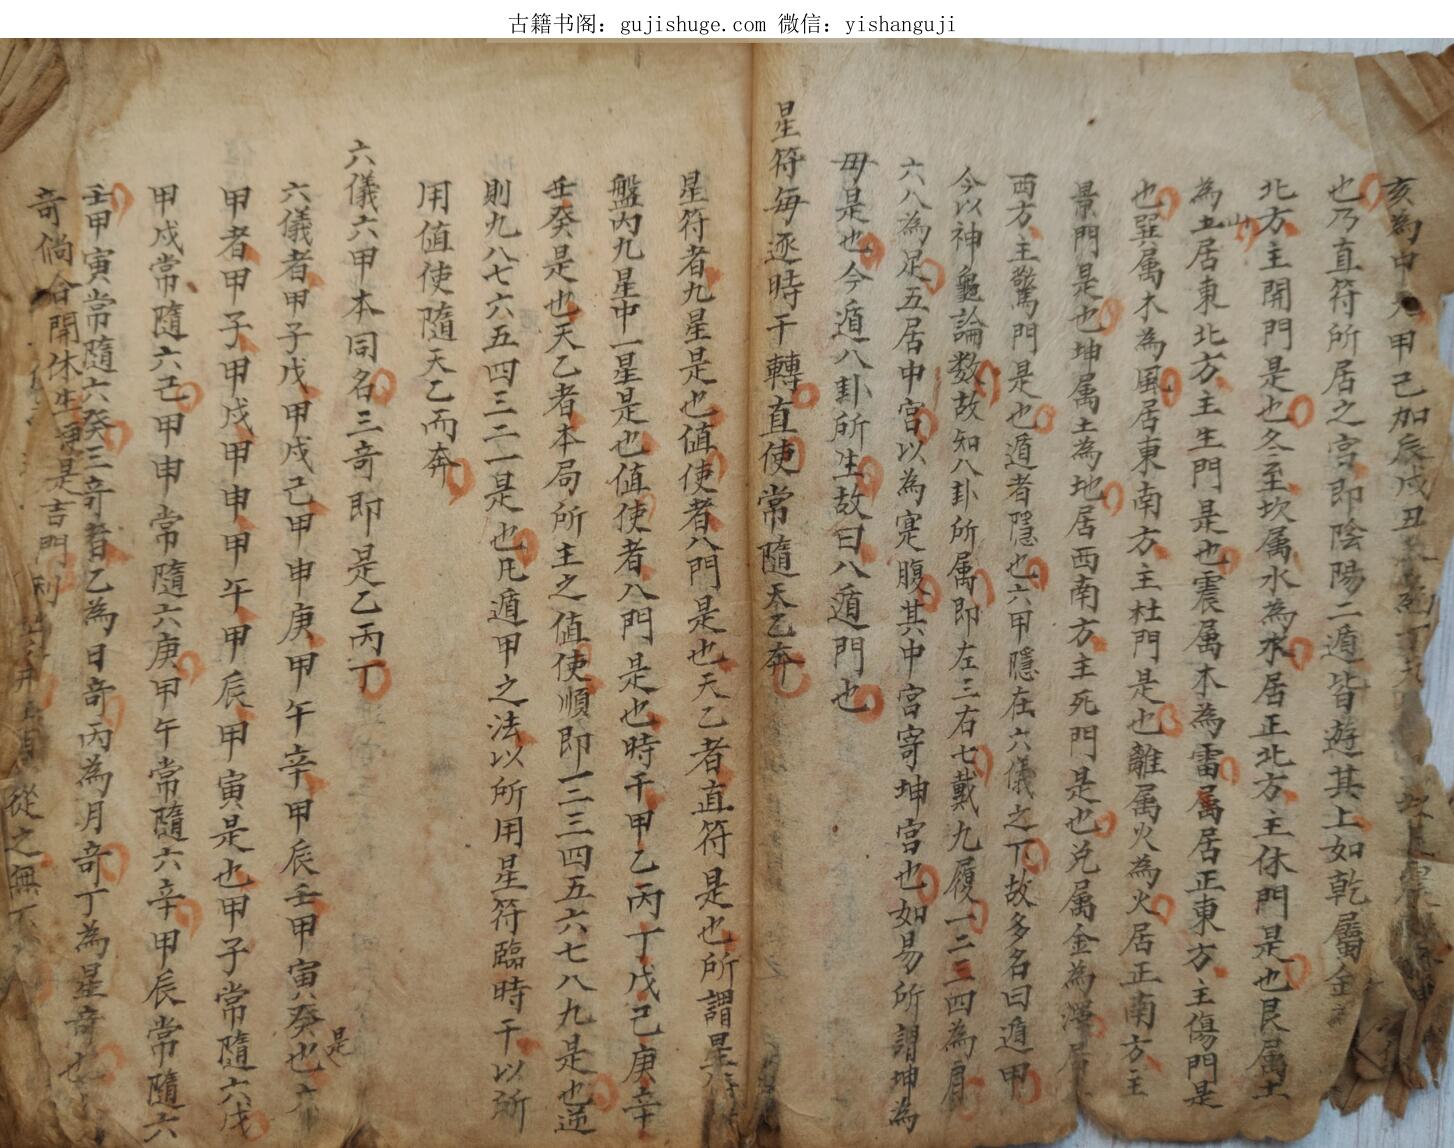 古籍书阁：gujishuge.com 微信：yishanguji
亥為中元甲己加辰戌丑
也乃直符所居之宮即陰陽二遁皆遊其上如乾屬金
北方主開門是也冬至坎属水為水居正北方主休門是也艮属土
為山居東北方主生門是也震属木為雷属居正東方主傷門是
也巽属木為風居東南方主杜門是也離属火為火居正南方主
景門是也坤属土為地居西南方主死門是也兌属金為澤居
西方主驚門是也遁者隱也六甲隱在六儀之下故多名曰遁甲
今以神龜論数故知八卦所属即左三右七戴九履一二三四為肩
六八為足五居中宮以為寔腹其中宮寄坤宮也如易所謂坤為
母是也今遁八卦所生故曰八遁門也
星符每逐時干轉直使常隨天乙奔
星符者九星是也值使者八門是也天乙者直符是也所謂星符
盤内九星中一星是也值使者八門是也時干甲乙丙丁戊己庚辛
壬癸是也天乙者本局所主之值使順即一二三四五六七八九是也逆
則九八七六五四三二一是也凡遁甲之法以所用星符臨時干以所
用值使隨天乙而奔
六儀六甲本同名三奇即是乙丙丁
六儀者甲子戊甲戌己甲申庚甲午辛甲辰壬甲寅癸是也六
甲者甲子甲戌甲申甲午甲辰甲寅是也甲子常隨六戊
甲戌常隨六己甲申常隨六庚甲午常隨六辛甲辰常隨六
壬甲寅常隨六癸三奇者乙為日奇丙為月奇丁為星奇也
奇倘合開休生便是吉門利
從之無不